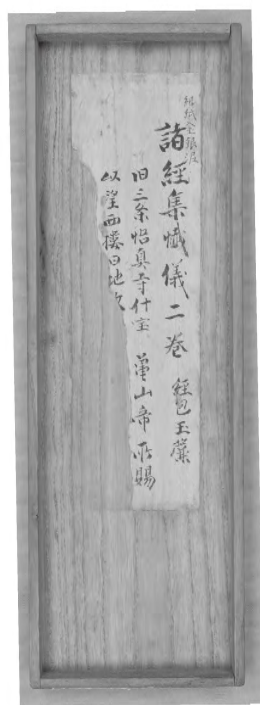 紺紙金銀泥
諸経集懺儀二巻 経包玉簾
旧三条悟真寺什宝 亀山帝所賜
以望西楼白地